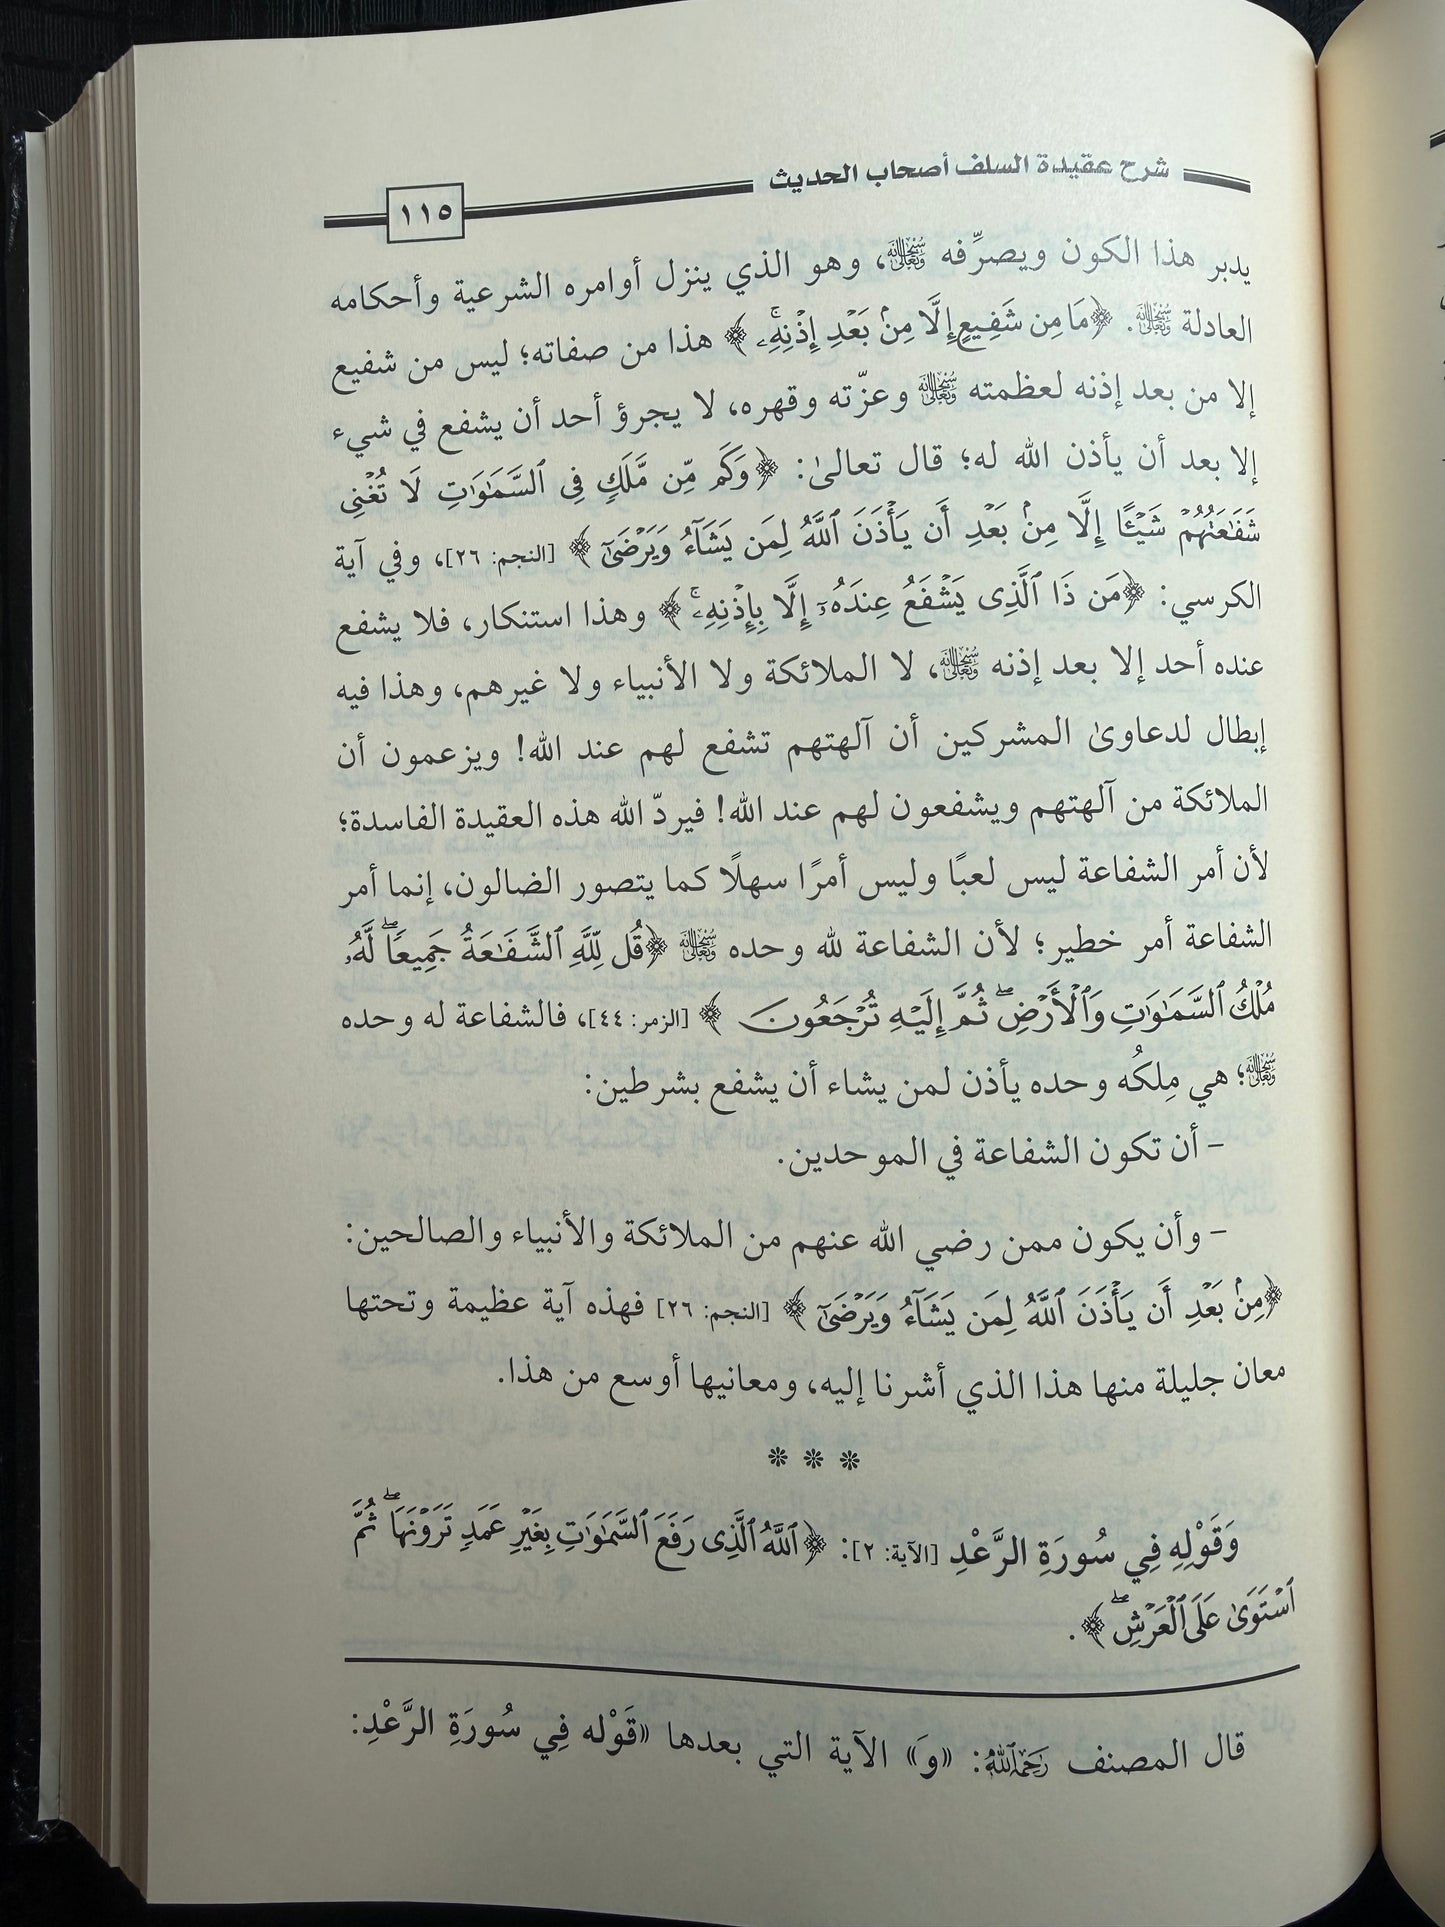 شرح عقيدة السلف أصحاب الحديث
١١٥
يدبر هذا الكون ويصرِّفه سُبْحَانَهُ وَتَعَالَى، وهو الذي ينزل أوامره الشرعية وأحكامه
العادلة سُبْحَانَهُ وَتَعَالَى. ﴿مَا مِن شَفِيعٍ إِلَّا مِنۢ بَعْدِ إِذْنِهِۦۚ﴾ هذا من صفاته؛ ليس من شفيع
إلا من بعد إذنه لعظمته سُبْحَانَهُ وَتَعَالَى وعزّته وقهره، لا يجرؤ أحد أن يشفع في شيء
إلا بعد أن يأذن الله له؛ قال تعالىٰ: ﴿وَكَم مِّن مَّلَكٍ فِى ٱلسَّمَٰوَٰتِ لَا تُغْنِى
شَفَٰعَتُهُمْ شَيْـًٔا إِلَّا مِنۢ بَعْدِ أَن يَأْذَنَ ٱللَّهُ لِمَن يَشَآءُ وَيَرْضَىٰٓ﴾ [النجم: ٢٦]، وفي آية
الكرسي: ﴿مَن ذَا ٱلَّذِى يَشْفَعُ عِندَهُۥٓ إِلَّا بِإِذْنِهِۦۚ﴾ وهذا استنكار، فلا يشفع
عنده أحد إلا بعد إذنه سُبْحَانَهُ وَتَعَالَى، لا الملائكة ولا الأنبياء ولا غيرهم، وهذا فيه
إبطال لدعاوىٰ المشركين أن آلهتهم تشفع لهم عند الله! ويزعمون أن
الملائكة من آلهتهم ويشفعون لهم عند الله! فيردّ الله هذه العقيدة الفاسدة؛
لأن أمر الشفاعة ليس لعبًا وليس أمرًا سهلًا كما يتصور الضالون، إنما أمر
الشفاعة أمر خطير؛ لأن الشفاعة لله وحده سُبْحَانَهُ وَتَعَالَى ﴿قُل لِّلَّهِ ٱلشَّفَٰعَةُ جَمِيعًاۖ لَّهُۥ
مُلْكُ ٱلسَّمَٰوَٰتِ وَٱلْأَرْضِۖ ثُمَّ إِلَيْهِ تُرْجَعُونَ﴾ [الزمر: ٤٤]، فالشفاعة له وحده
سُبْحَانَهُ وَتَعَالَى؛ هي مِلكُه وحده يأذن لمن يشاء أن يشفع بشرطين:
– أن تكون الشفاعة في الموحدين.
– وأن يكون ممن رضي الله عنهم من الملائكة والأنبياء والصالحين:
﴿مِنۢ بَعْدِ أَن يَأْذَنَ ٱللَّهُ لِمَن يَشَآءُ وَيَرْضَىٰٓ﴾ [النجم: ٢٦] فهذه آية عظيمة وتحتها
معان جليلة منها هذا الذي أشرنا إليه، ومعانيها أوسع من هذا.
* * *
وَقَوْلِهِ فِي سُورَةِ الرَّعْدِ [الآية: ٢]: ﴿ٱللَّهُ ٱلَّذِى رَفَعَ ٱلسَّمَٰوَٰتِ بِغَيْرِ عَمَدٍ تَرَوْنَهَاۖ ثُمَّ
ٱسْتَوَىٰ عَلَى ٱلْعَرْشِۖ﴾.
قال المصنف رَحِمَهُ ٱللَّهُ: «وَ» الآية التي بعدها «قَوْله فِي سُورَةِ الرَّعْدِ: